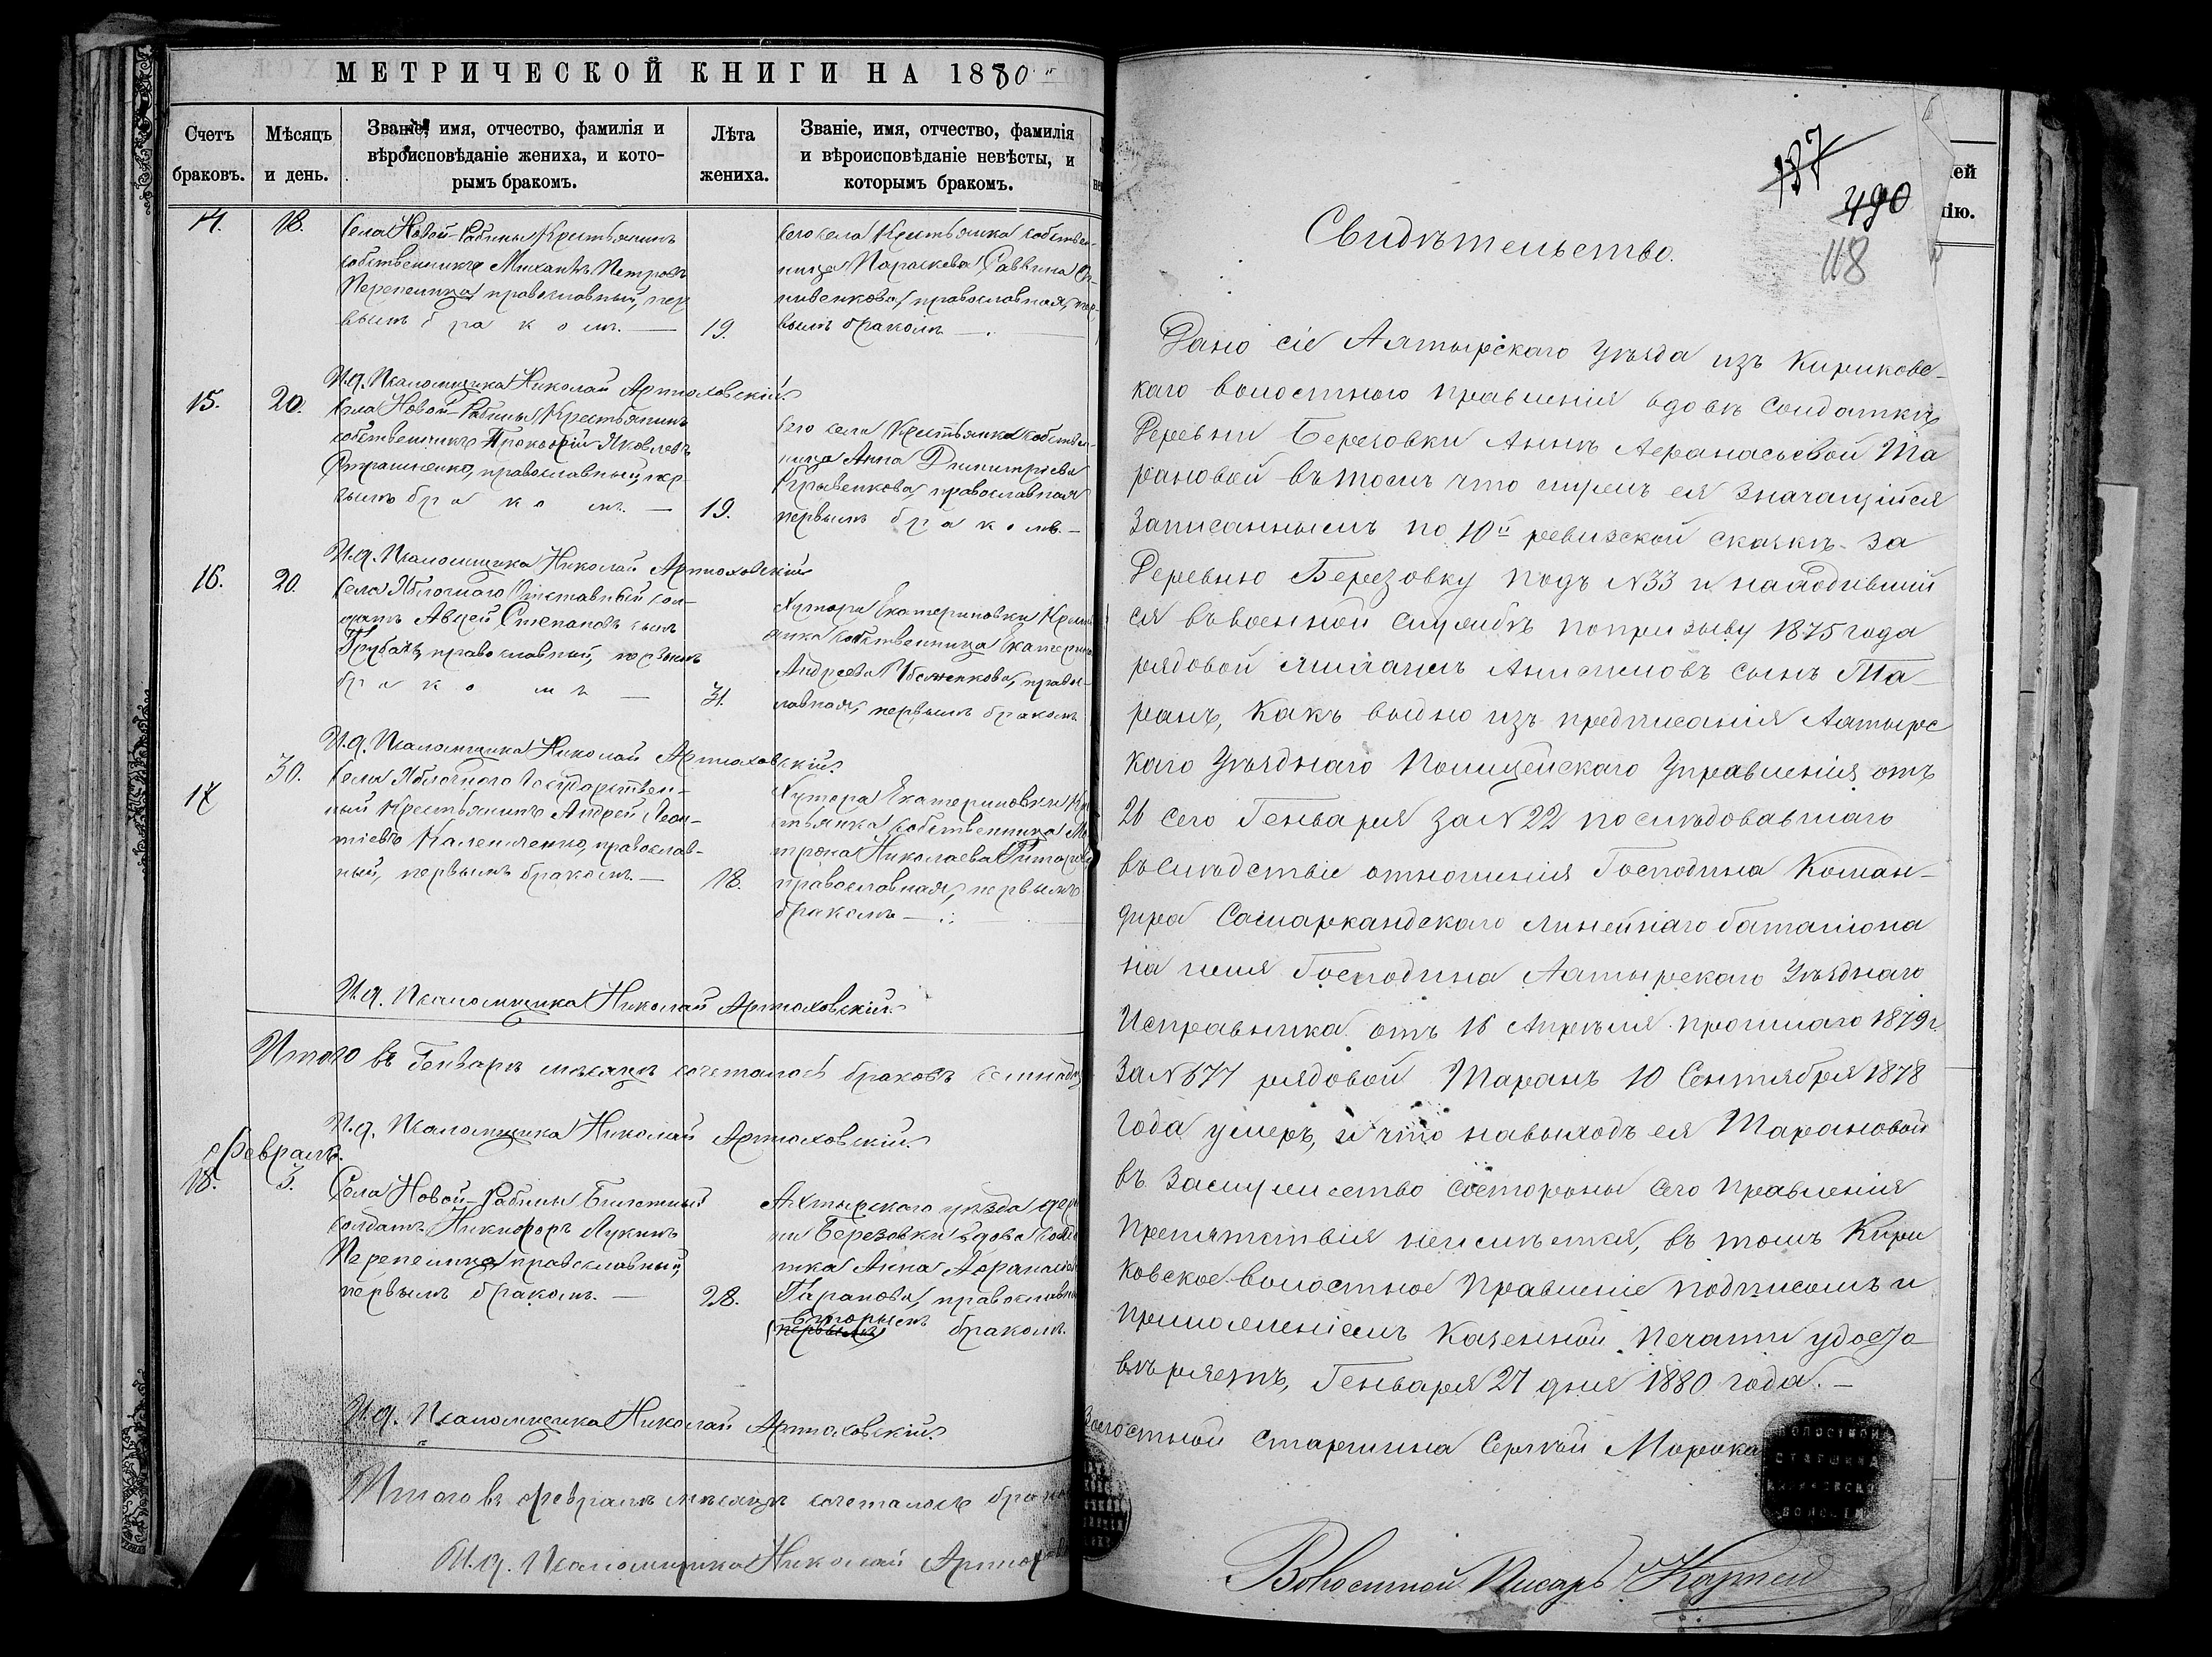 МЕТРИЧЕСКОЙ КНИГИ НА 1880
Счетъ браковъ.
Мѣсяцъ и день.
Званіе, имя, отчество, фамилія и
вѣроисповѣданіе жениха, и кото-
рымъ бракомъ.
Лѣта жениха.
Званіе, имя, отчество, фамилія
и вѣроисповѣданіе невѣсты, и
которымъ бракомъ.
14. 18.
Села Новой-Рабины Крестьянинъ
собственникъ Михаилъ Петровъ
Перепелица, православный, пер
вымъ бракомъ. —
19.
Сего села Крестьянка собствен-
ница Параскева Саввина
православная, пер-
вымъ бракомъ —.
И.д. Псаломщика Николай Артюховскій
15. 20.
Села Новой-Рабины Крестьянинъ
собственникъ Прокофій Яковлевъ
Страшненко, православный, пер
вымъ бракомъ. —
19.
Сего села Крестьянка собствен-
ница Анна Димитріева
Кривенкова, православная
первымъ бракомъ. —
И.д. Псаломщика Николай Артюховскій
16. 20.
Села Яблочного Отставный сол-
датъ Авдей Степановъ сынъ
Трубачъ, православный, первымъ
бракомъ —
31.
Хутора Екатериновки Кресть
янка собственница Екатерина
Андреева православ-
лавная, первымъ бракомъ
И.д. Псаломщика Николай Артюховскій.
17 30.
Села Яблочного Государствен-
ный Крестьянинъ Андрей Леон-
тіевъ Калениченко, православ-
ный, первымъ бракомъ. —
18.
Хутора Екатериновки Кре
стьянка собственница Ма
трона Николаева
православная, первымъ
бракомъ —.
И.д. Псаломщика Николай Артюховскій.
Итого въ Генварѣ мѣсяцѣ сочеталось браковъ семнадц
И.д. Псаломщика Николай Артюховскій.
Февраль.
18. 3.
Села Новой-Рабины Билетный
солдатъ Никифоръ Лукинъ
Перепелица православный,
первымъ бракомъ. —
28.
Ахтырскаго уѣзда дерев
ни Березовки вдова солда
тка Анна Афанасьева
Таранова, православн
вторымъ
(первымъ) бракомъ.
И.д. Псаломщика Николай Артюховскій.
Итого въ Февралѣ мѣсяцѣ сочеталось брако
И.д. Псаломщика Николай Артюхов
137
490
118
ей
нію.
Свидѣтельство.
Дано сіе Ахтырскаго уѣзда изъ Кириковс-
каго волостного правленія вдовѣ солдаткѣ
Деревни Березовки Аннѣ Афанасьевой Та
рановой въ томъ что мужъ ея значащійся
записаннымъ по 10й ревизской сказкѣ за
Деревню Березовку подъ №33 и находивший
ся въ военной службѣ по призыву 1875 года
рядовой Анисимовъ сынъ Та-
ранъ, какъ видно изъ предписанія Ахтырс
каго Уѣзднаго Полицейскаго Управленія отъ
26 сего Генваря за №22 послѣдовавшаго
въ слѣдствіе отношенія Господина Коман-
дира Самаркандскаго линейнаго баталіона
на имя Господина Ахтырскаго Уѣзднаго
Исправника отъ 16 Апрѣля прошлаго 1879 г.
за №677 рядовой Таранъ 10 Сентября 1878
года умеръ, и что на выходъ ея Тарановой
въ замужество со стороны сего правленія
препятствія не имѣется, въ томъ Кири
ковское волостное правленіе подписомъ и
приложеніемъ казенной печати удосто
вѣряетъ, Генваря 27 дня 1880 года. —
Волостной старшина Сергѣй Морока
ВОЛОСТНОЙ
СТАРШИНА
КИРИКОВСКОЙ
ВОЛОСТИ
Волостной Писарь